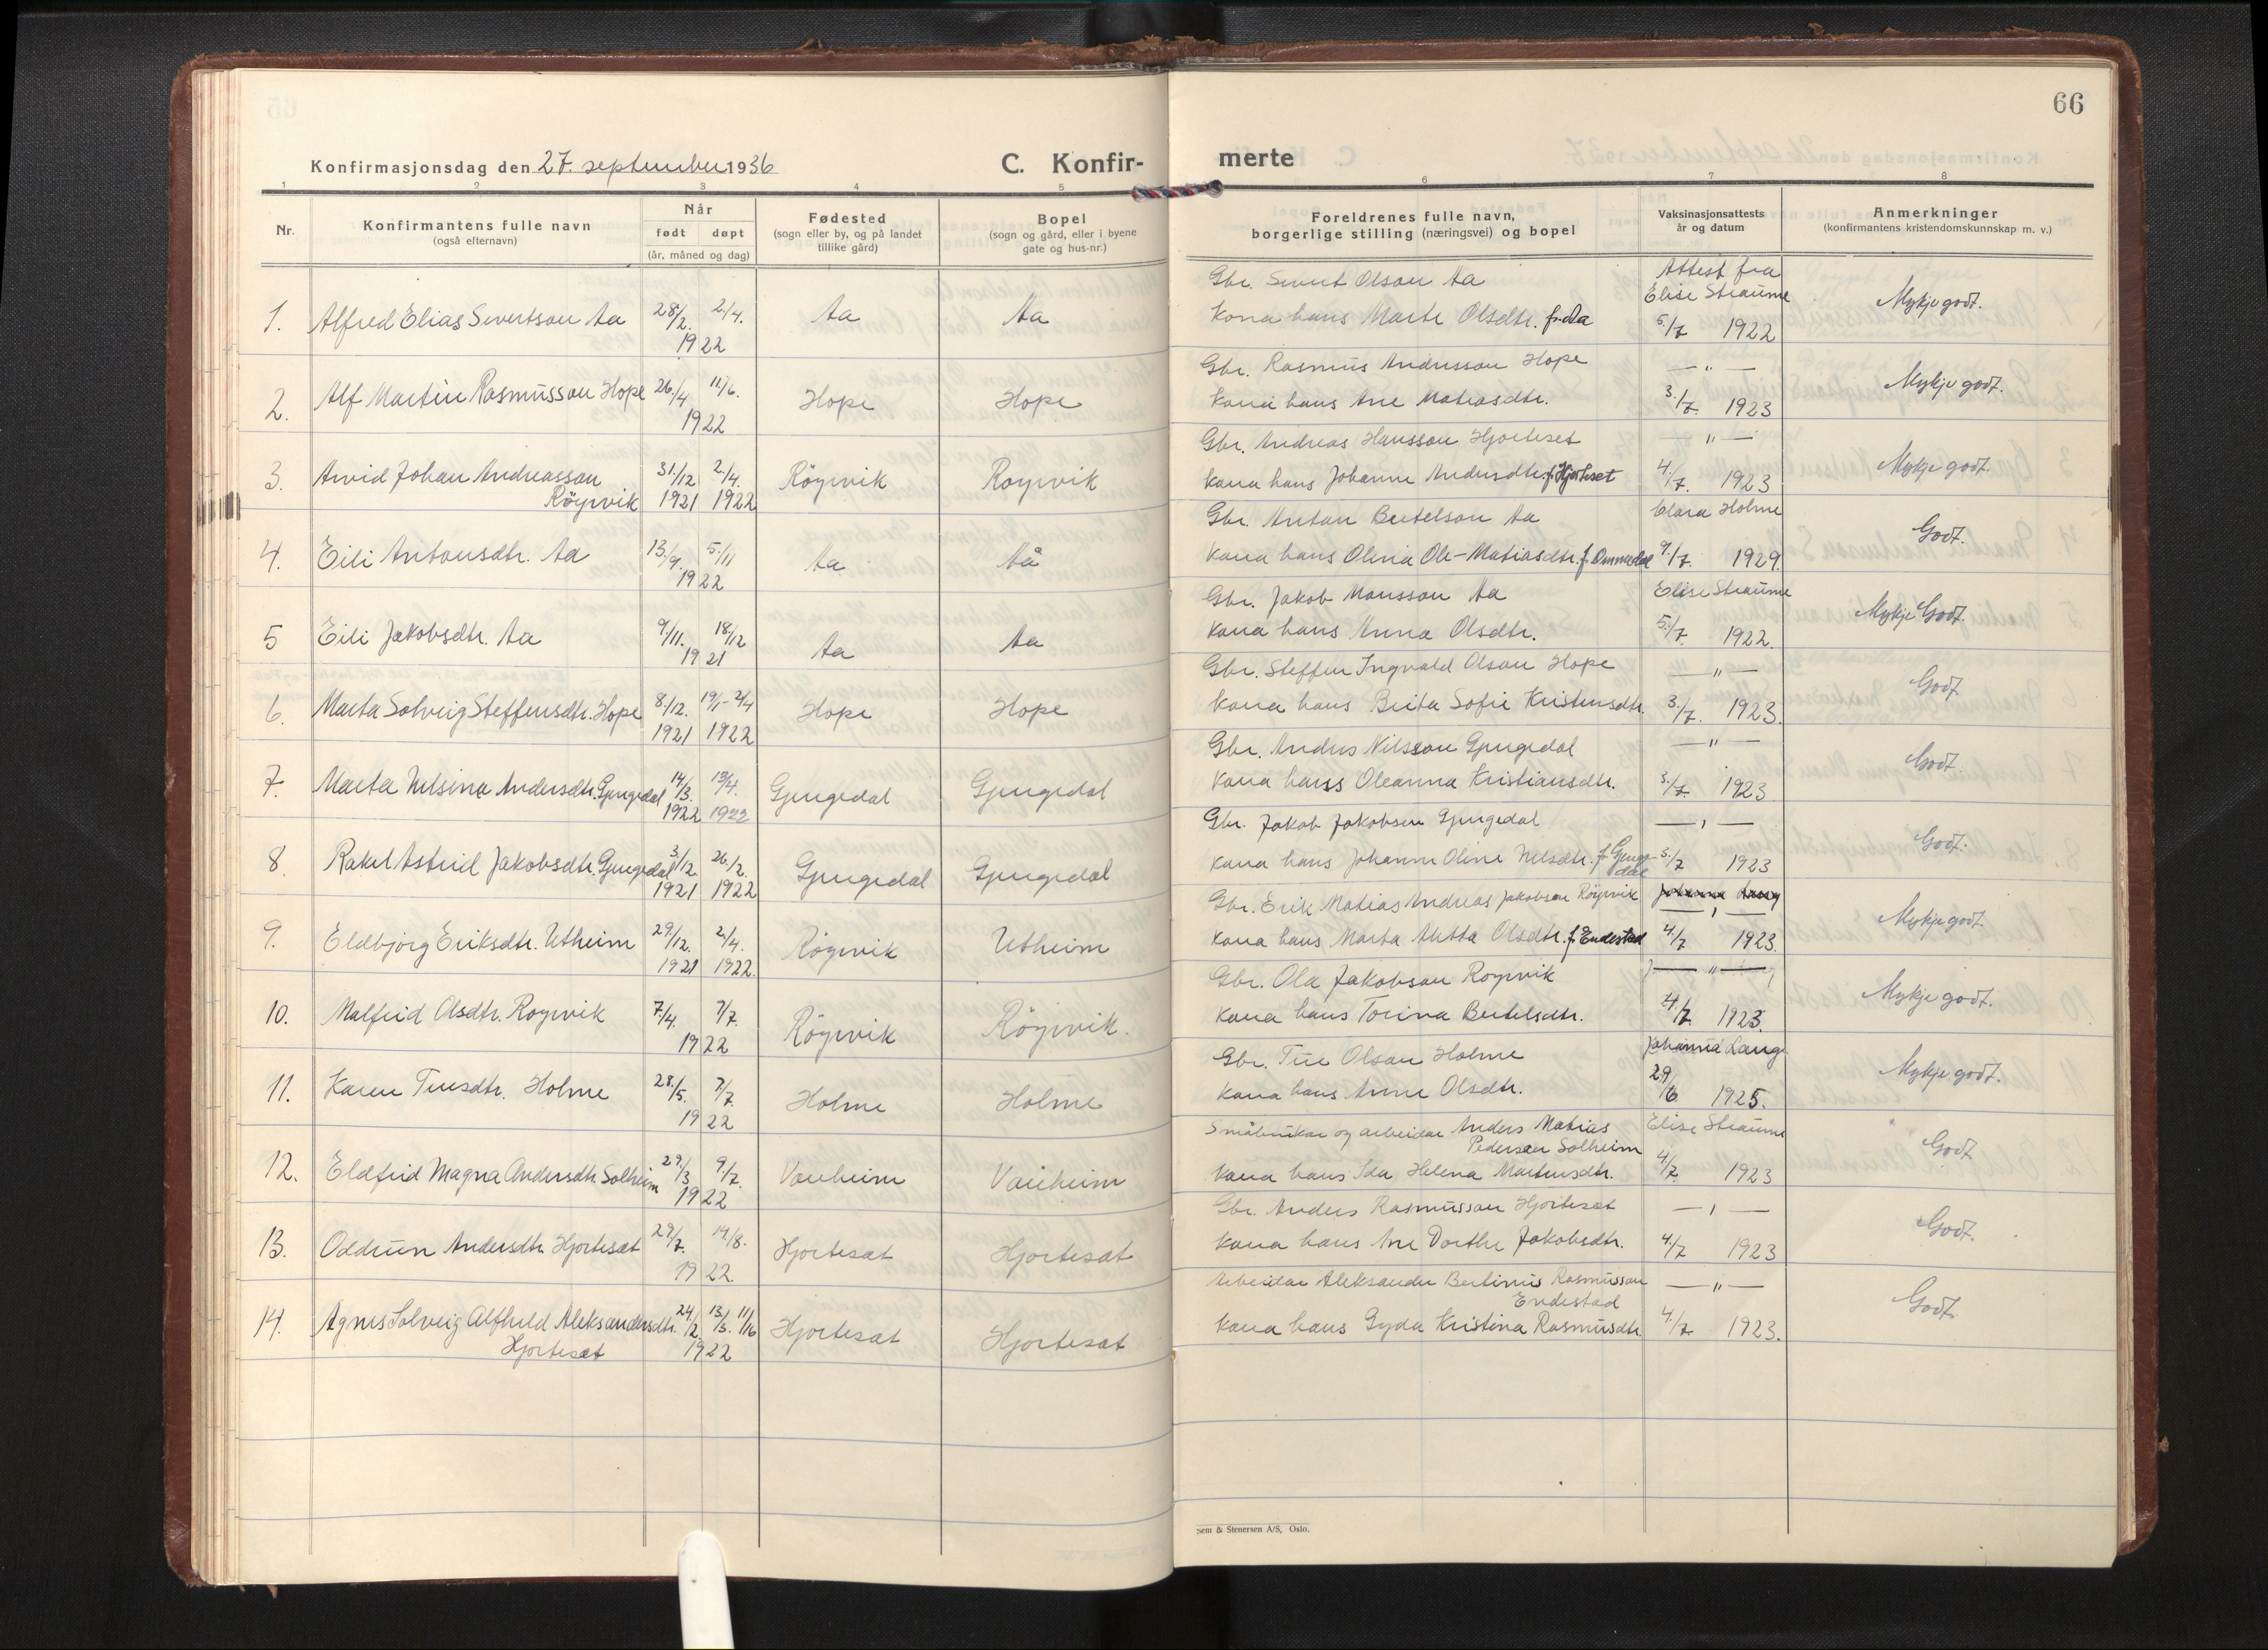 66
Konfirmasjonsdag den 27. september 1936
C. Konfir-
merte
1 2 3 4 5 6 7 8
Nr.
Konfirmantens fulle navn
(også efternavn)
Når
født døpt
(år, måned og dag)
Fødested
(sogn eller by, og på landet
tillike gård)
Bopel
(sogn og gård, eller i byene
gate og hus-nr.)
Foreldrenes fulle navn,
borgerlige stilling (næringsvei) og bopel
Vaksinasjonsattests
år og datum
Anmerkninger
(konfirmantens kristendomskunnskap m. v.)
1. Alfred Elias Sivertson Aa 28/2. 2/4. 1922 Aa Aa
Gbr. Sivert Olson Aa
Kona hans Marte Olsdtr. f. Aa
Attest fra
Elise Straume
5/7 1922
Mykje godt.
2. Alf Martin Rasmusson Hope 26/4 11/6. 1922 Hope Hope
Gbr. Rasmus Andersson Hope
Kona hans Ane Matiasdtr.
— " —
3./7. 1923
Mykje godt.
3. Arvid Johan Andreasson
Röyrvik 31./12 1921 2./4. 1922 Röyrvik Royrvik
Gbr. Andreas Hansson Hjorteset
Kona hans Johanne Andersdtr. f. Hjorteset
— " —
4./7. 1923
Mykje godt.
4. Eili Antonsdtr. Aa 13./9. 5./11 1922 Aa Aå
Gbr. Anton Bertelson Aa
Kona hans Olina Ole-Matiasdtr. f. Ommedal
Clara Holme
9./7. 1929.
Godt.
5 Eili Jakobsdtr. Aa 9/11. 18/12 1921 Aa Aa
Gbr. Jakob Monsson Aa
Kona hans Anna Olsdtr.
Elise Straume
5./7. 1922.
Mykje Godt.
6. Marta Solveig Steffensdtr. Hope 8./12. 1921 19/1 - 2/4 1922 Hope Hope
Gbr. Steffen Ingvald Olson Hope
Kona hans Brita Sofie Kristensdtr.
— " —
3./7. 1923.
Godt
7. Marta Nilsina Andersdtr. Gjengedal 14/3. 1922 13/4. 1922 Gjengedal Gjengedal
Gbr. Anders Nilsson Gjengedal
Kona hans Oleanna Kristiansdtr.
— " —
3./7. 1923
Godt.
8. Rakel Astrid Jakobsdtr. Gjengedal 3/12 1921 26/2. 1922 Gjengedal Gjengedal
Gbr. Jakob Jakobsen Gjengedal
Kona hans Johanne Oline Nilsdtr. f. Gjenge-
dal
— " —
3./7 1923
Godt.
9. Eldbjörg Eriksdtr. Utheim 29/12. 1921 2/4. 1922. Röyrvik Utheim
Gbr. Erik Matias Andreas Jakobson Röyrvik
Kona hans Marta Aletta Olsdtr. f. Endestad
Johanna Lang
— " —
4./7 1923.
Mykje godt.
10. Malfrid Olsdtr. Royrvik 7/4. 7/7. 1922 Röyrvik Röyrvik.
Gbr. Ola Jakobson Royrvik
Kona hans Torina Bertelsdtr.
— " —
4./7. 1923.
Mykje godt.
11. Karen Tuesdtr. Holme 28./5. 7/7. 1922 Holme Holme
Gbr. Tue Olson Holme
Kona hans Anne Olsdtr.
Johanna Lang
29/6 1925.
Mykje godt.
12. Eldfrid Magna Andersdtr. Solheim 29./3 9./7. 1922 Vauheim Vauheim
Småbrukar og arbeidar Anders Matias
Pederson Solheim
Kona hans Ida Helena Martensdtr.
Elise Straume
4./7. 1923
Godt
13. Oddrun Andersdtr. Hjortesæt 29/7. 14/8. 1922. Hjortesæt Hjortesæt
Gbr. Anders Rasmusson Hjortesæt
Kona hans Ane Dorthe Jakobsdtr.
— " —
4./7 1923
Godt.
14. Agnes Solveig Alfhild Aleksandersdtr.
Hjortesæt 24/2. 13/3. 11/16 1922 Hjortesæt Hjortesæt
Arbeidar Aleksander Bertinus Rasmusson
Endestad
Kona hans Gyda Kristina Rasmusdtr.
— " —
4./7 1923.
Godt.
Sem & Stenersen A/S, Oslo.